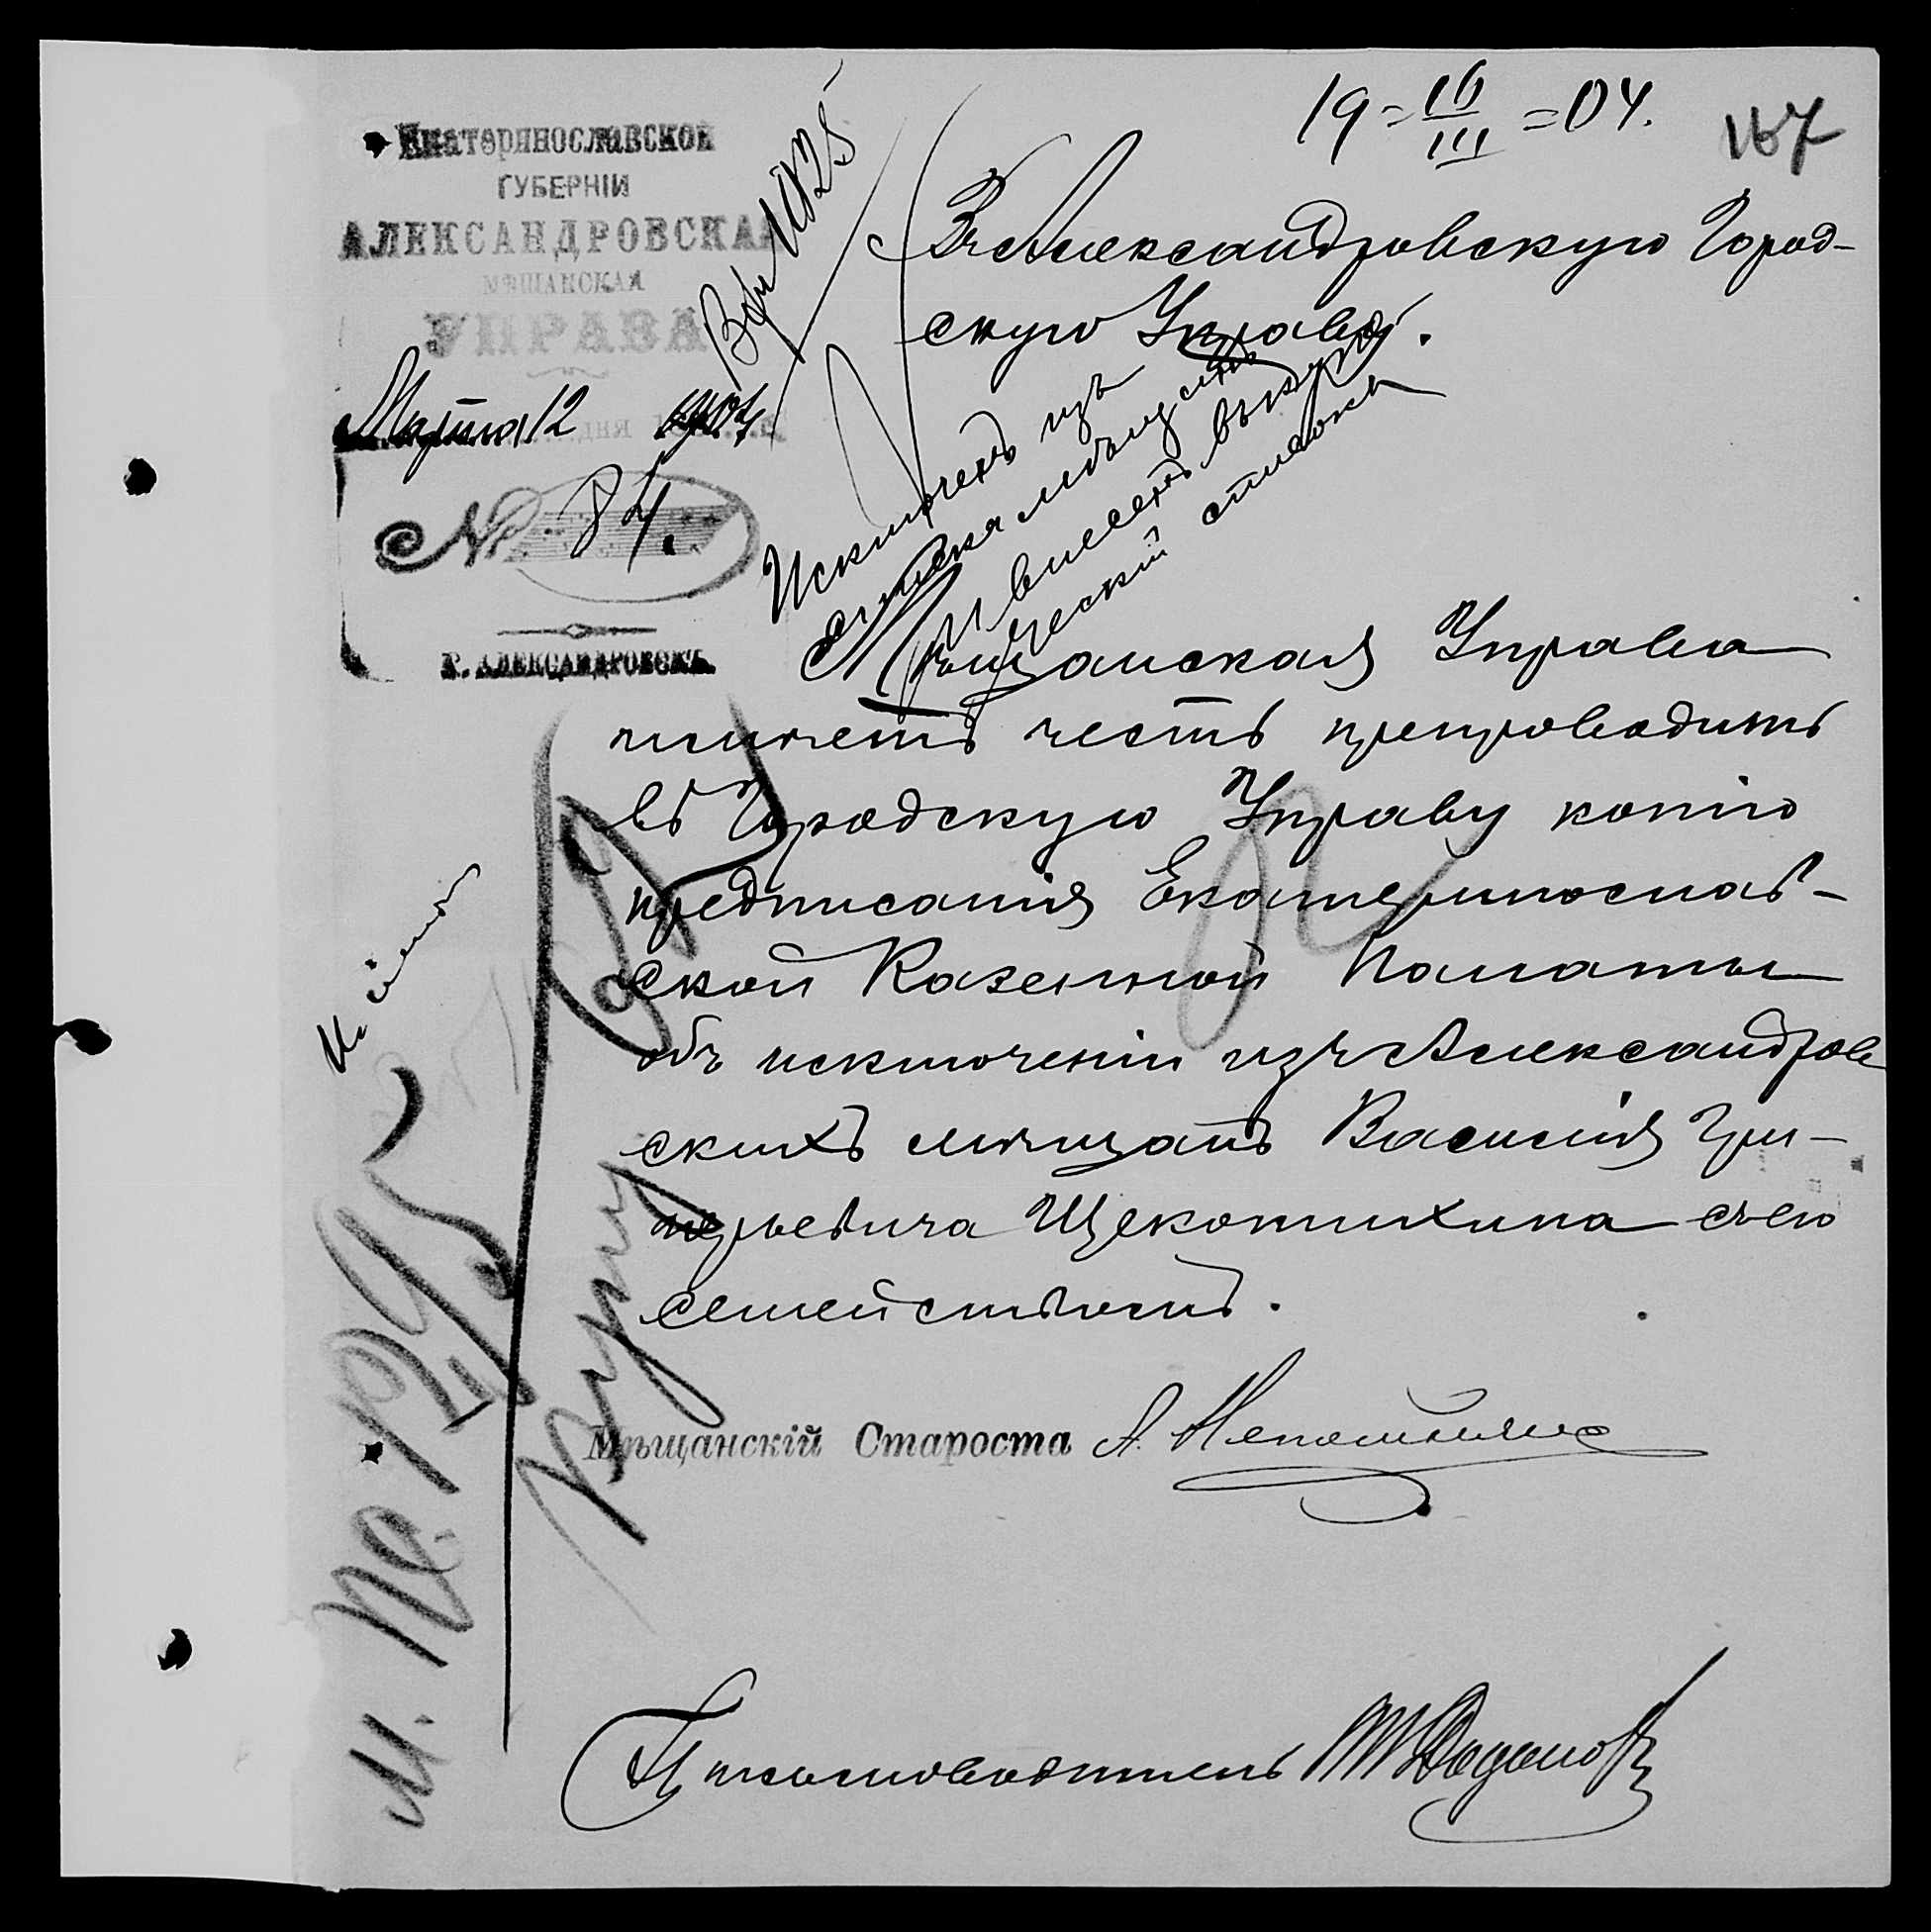 19=16/III=04.
167
Екатеринославской
ГУБЕРНІИ
АЛЕКСАНДРОВСКАЯ
МѢЩАНСКАЯ
УПРАВА
Марта 12 дня 1904
№ 84.
Г. АЛЕКСАНДРОВСКЪ
Въ Александровскую Город-
скую Управу.
Исключенъ изъ
списка мѣщанъ
и внесенъ въ купе-
ческій списокъ
Мѣщанская Управа
имѣетъ честь препроводить
въ Городскую Управу копію
предписанія Екатеринослав-
ской Казенной Палаты
объ исключеніи изъ Александров
скихъ мѣщанъ Василія Гри-
горьевича Щекотихина съ его
семействомъ.
Мѣщанскій Староста А.
Письмоводитель